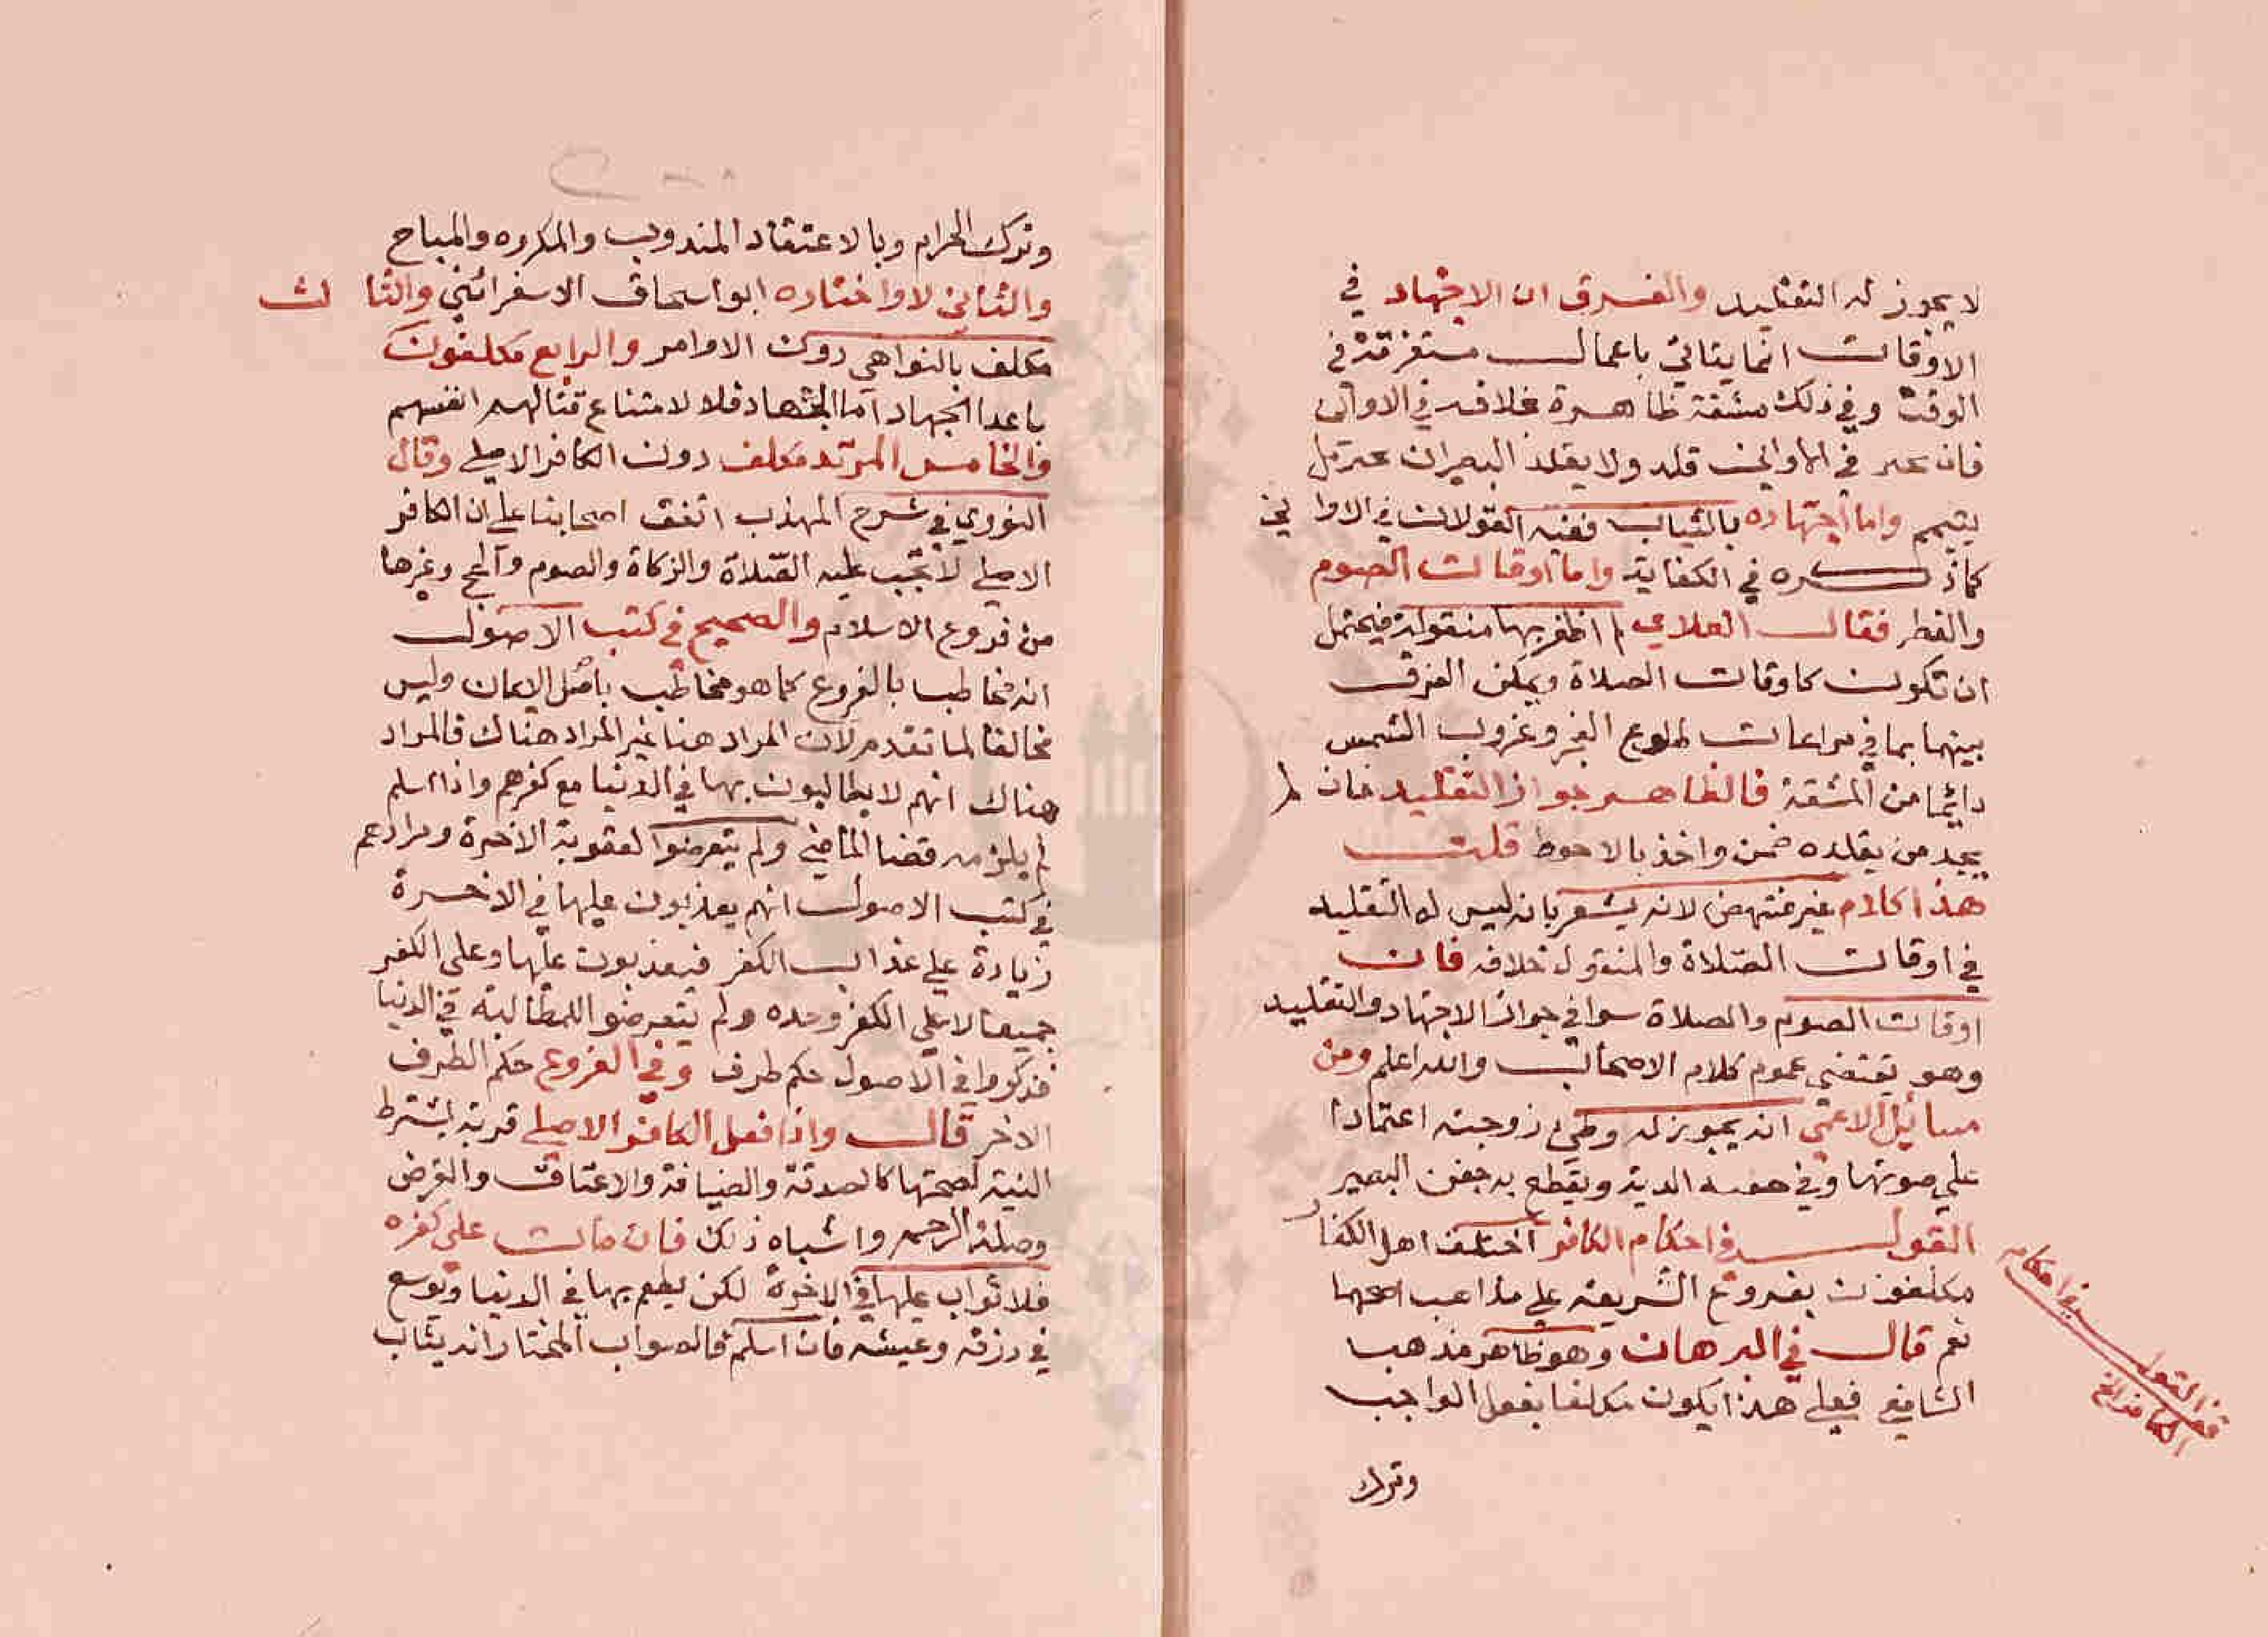 لا يجوز له التقليد والفرق ان الاجتهاد في
الاوقات انما يتاتي باعمال مستغرقة في
الوقت وفي ذلك مشقة ظاهرة بخلافه في الاواني
فان تحير في الاواني قلد ولا يقلد البصير ان تحير بل
يتيمم واما اجتهاده بالثياب ففيه القولان في الاواني
كما ذكره في الكفاية واما اوقات الصوم
والفطر فقال العلاي لم اظفر بها منقولة فيحتمل
ان تكون كاوقات الصلاة ويمكن الفرق
بينهما بما في مراعات طلوع الفجر وغروب الشمس
دائما من المشقة فالظاهر جواز التقليد فان لم
يجد من يقلده خمن واخذ بالاحوط قلت
هذا كلام غير منتهض لانه يشعر بانه ليس له التقليد
في اوقات الصلاة والمنقول خلافه فان
اوقات الصوم والصلاة سوا في جواز الاجتهاد والتقليد
وهو يقتضي عموم كلام الاصحاب والله اعلم ومن
مسائل الاعمى انه يجوز له وطئ زوجته اعتمادا
علي صوتها وفي الدية ويقطع به جفن البصير
القول في احكام الكافر اختلف اهل الكفار
مكلفون بفروع الشريعة علي مذاهب اصحها
نعم قال في البرهان وهو ظاهر مذهب
الشافعي فعلي هذا يكون مكلفا بفعل الواجب
وترك
قف القول في احكام
الكافر الخ
وترك الحرام وبالاعتقاد المندوب والمكروه والمباح
والثاني لا واختاره ابو اسحاق الاسفرائني والثالث
مكلف بالنواهي دون الاوامر والرابع مكلفون
ماعدا الجهاد اما الجهاد فلا لامتناع قتالهم انفسهم
والخامس المرتد مكلف دون الكافر الاصلي وقال
النووي في شرح المهذب اتفق اصحابنا علي ان الكافر
الاصلي لا تجب عليه الصلاة والزكاة والصوم والحج وغيرها
من فروع الاسلام والصحيح في كتب الاصول
انه مخاطب بالفروع كما هو مخاطب باصل الايمان وليس
مخالفا لما تقدم لان المراد هنا غير المراد هناك فالمراد
هناك انهم لا يطالبون بها في الدنيا مع كفرهم واذا اسلم
لم يلزمه قضا الماضي ولم يتعرضوا لعقوبة الاخرة ومرادهم
في كتب الاصول انهم يعذبون عليها في الاخرة
زيادة علي عذاب الكفر فيعذبون عليها وعلي الكفر
جميعا لا علي الكفر وحده ولم يتعرضوا للمطالبة في الدنيا
فذكروا في الاصول حكم طرف وفي الفروع حكم الطرف
الاخر قال واذا فعل الكافر الاصلي قربة يشترط
النية لصحتها كالصدقة والضيافة والاعتاق والقرض
وصلة الرحم واشباه ذلك فان مات علي كفره
فلا ثواب عليها في الاخرة لكن يطعم بها في الدنيا ويوسع
في رزقه وعيشه فان اسلم فالصواب المختار انه يثاب